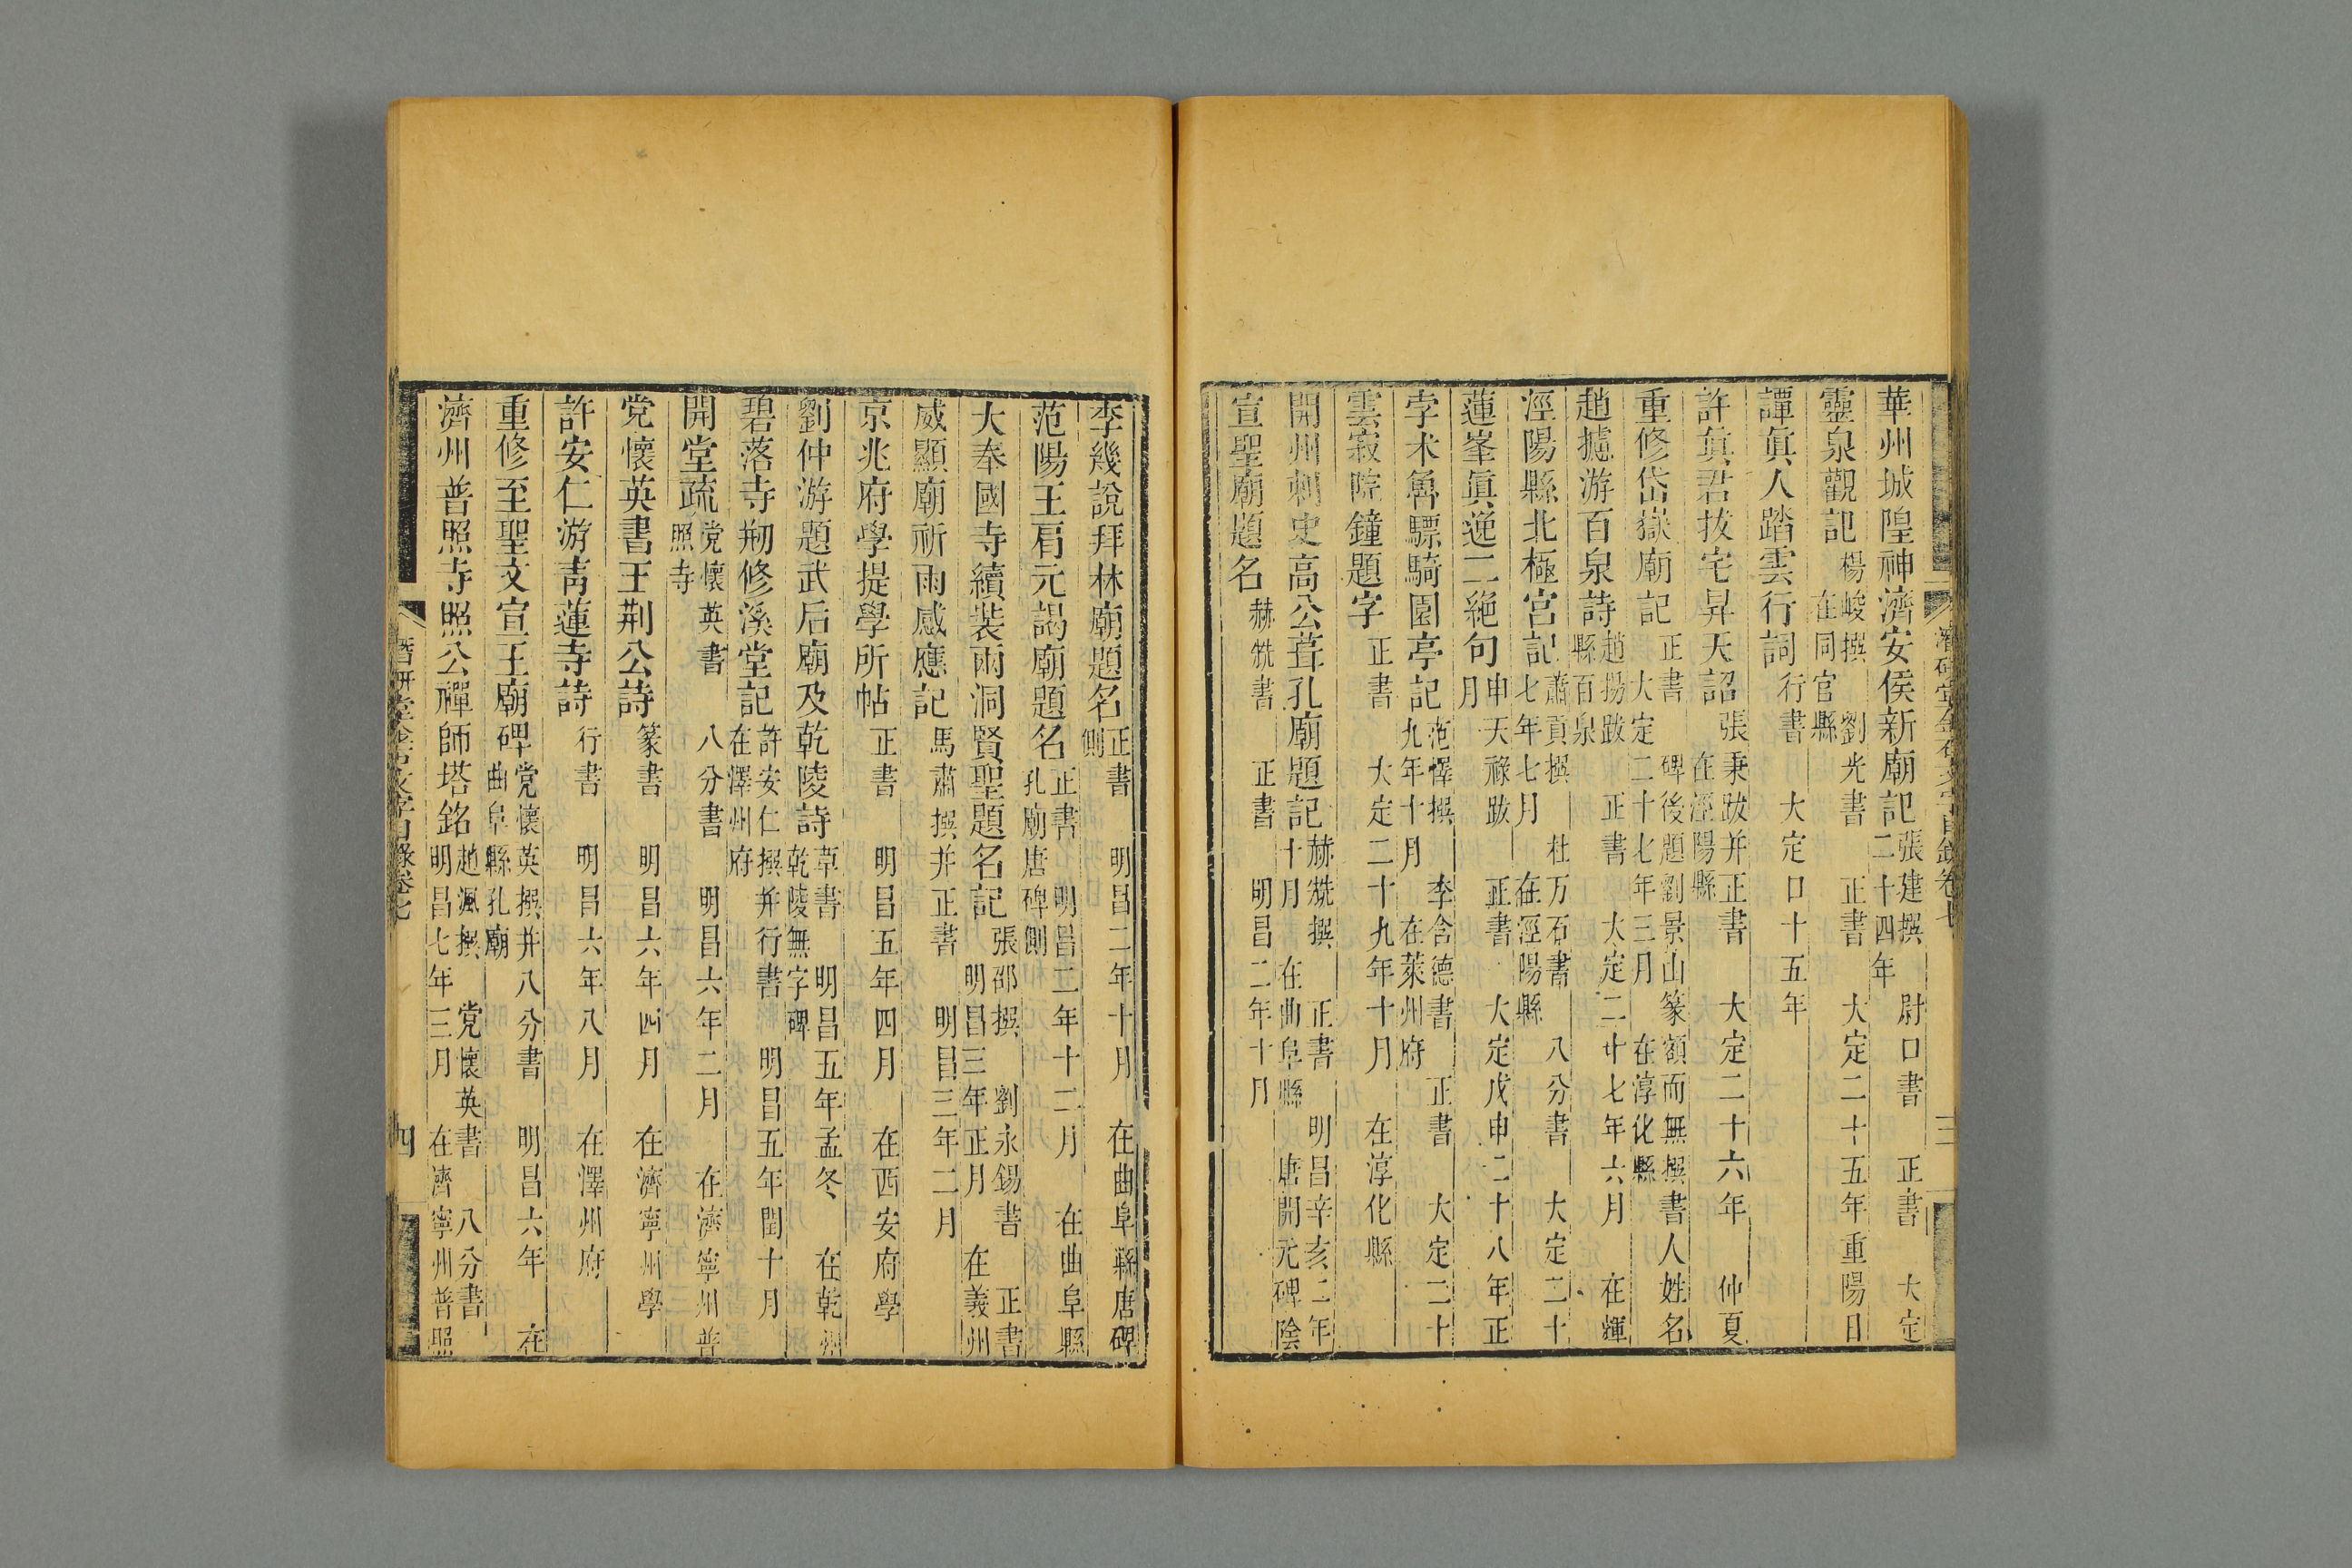 華州城隍神濟安侯新廟記 張建撰 尉口書 正書 大定二十四年
靈泉觀記 楊峻撰 劉光書 正書 大定二十五年重陽日 在同官縣
譚眞人踏雲行詞 行書 大定口十五年
許眞君拔宅昇天詔 張秉跋并正書 大定二十六年仲夏 在涇陽縣
重修岱嶽廟記 正書 碑後題劉景山篆額而無撰書人姓名 大定二十七年三月 在淳化縣
趙攄游百泉詩 趙揚跋 正書 大定二十七年六月 在輝縣百泉
涇陽縣北極宮記 蕭貢撰 杜万石書 八分書 大定二十七年七月 在涇陽縣
蓮峯眞逸二絕句 申天祿跋 正書 大定戊申二十八年正月
孛朮魯驃騎園亭記 范懌撰 李含德書 正書 大定二十九年十月 在萊州府
雲寂院鐘題字 正書 大定二十九年十月 在淳化縣
開州刺史高公葺孔廟題記 赫兟撰 正書 明昌辛亥二年十月 在曲阜縣唐開元碑陰
宣聖廟題名 赫兟書 正書 明昌二年十月
潛研堂金石文字目錄卷七 三
李幾說拜林廟題名 正書 明昌二年十月 在曲阜縣唐碑側
范陽王肩元謁廟題名 正書 明昌二年十二月 在曲阜縣孔廟唐碑側
大奉國寺續裝兩洞賢聖題名記 張邵撰 劉永錫書 正書 明昌三年正月 在義州
威顯廟祈雨感應記 馬肅撰并正書 明昌三年二月
京兆府學提學所帖 正書 明昌五年四月 在西安府學
劉仲游題武后廟及乾陵詩 草書 明昌五年孟冬 在乾州乾陵無字碑
碧落寺剏修溪堂記 許安仁撰并行書 明昌五年閏十月 在澤州府
開堂疏 党懷英書 八分書 明昌六年二月 在濟寧州普照寺
党懷英書王荆公詩 篆書 明昌六年四月 在濟寧州學
許安仁游靑蓮寺詩 行書 明昌六年八月 在澤州府
重修至聖文宣王廟碑 党懷英撰并八分書 明昌六年 在曲阜縣孔廟
濟州普照寺照公禪師塔銘 趙渢撰 党懷英書 八分書 明昌七年三月 在濟寧州普照
潛研堂金石文字目錄卷七 四